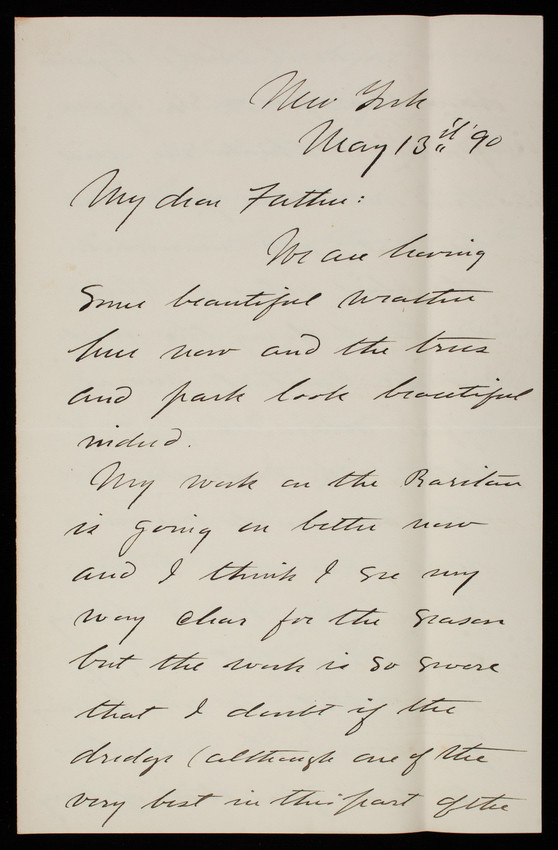 New York
May 13th '90
My dear Father:
We are having
some beautiful weather
here now and the trees
and park look beautiful
indeed.
My work on the Raritan
is going on better now
and I think I see my
way clear for the season
but the work is so severe
that I doubt if the
dredge (although one of the
very best in this part of the